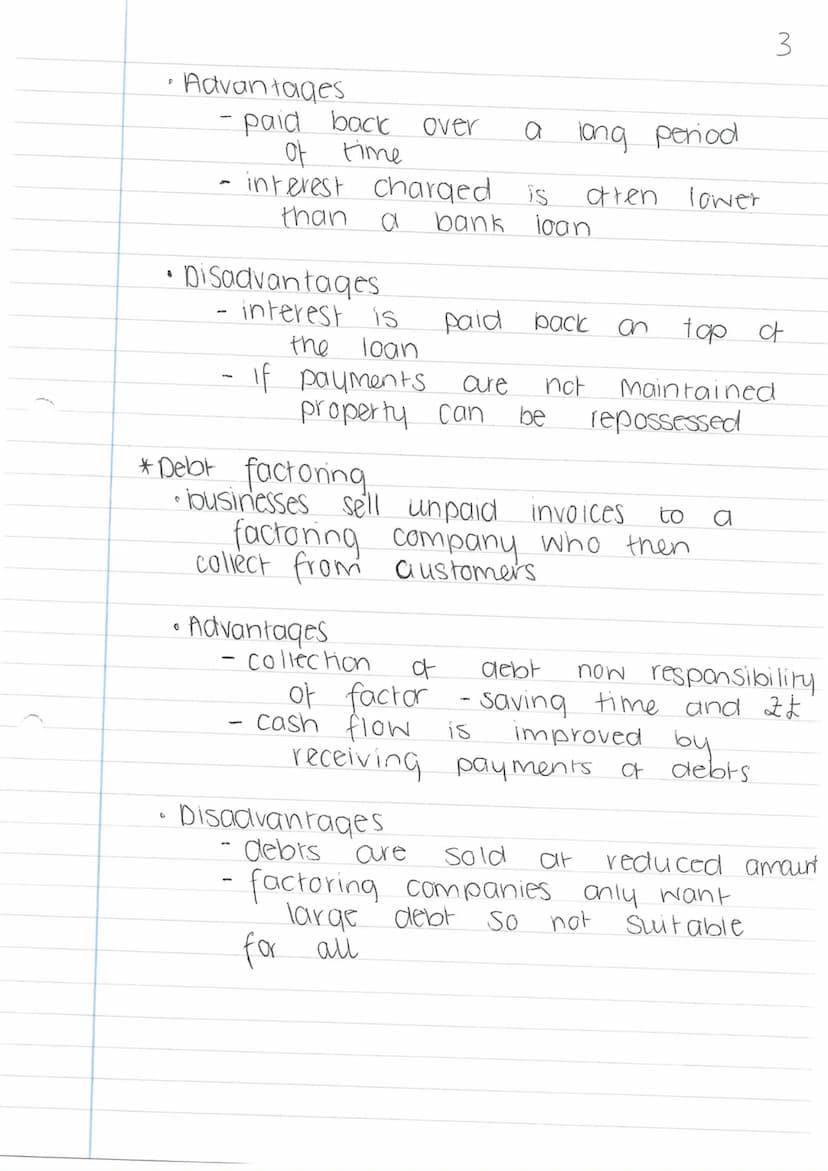 3
• Advantages
- paid back over a long period
of time
- interest charged is often lower
than a bank loan
• Disadvantages
- interest is paid back on top of
the loan
- If payments are not maintained
property can be repossessed
* Debt factoring
• businesses sell unpaid invoices to a
factoring company who then
collect from customers
• Advantages
- collection of debt now responsibility
of factor - saving time and £
- cash flow is improved by
receiving payments of debts
• Disadvantages
- debts are sold at reduced amount
- factoring companies only want
large debt so not suitable
for all